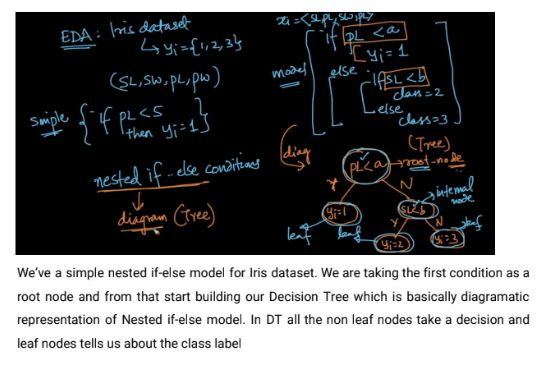 EDA: Iris dataset
↳ yi = {1, 2, 3}
(SL, SW, PL, PW)
simple { if PL < 5
then yi = 1 }
nested if-else conditions
diagram (Tree)
xi = <SL, PL, SW, PL>
model
if PL < a
yi = 1
else
if SL < b
class = 2
else
class = 3
diag
(Tree)
PL < a → root-node
Y N
yi = 1
SL < b
internal node
leaf
Y N
leaf
yi = 2
yi = 3
leaf
We've a simple nested if-else model for Iris dataset. We are taking the first condition as a
root node and from that start building our Decision Tree which is basically diagramatic
representation of Nested if-else model. In DT all the non leaf nodes take a decision and
leaf nodes tells us about the class label